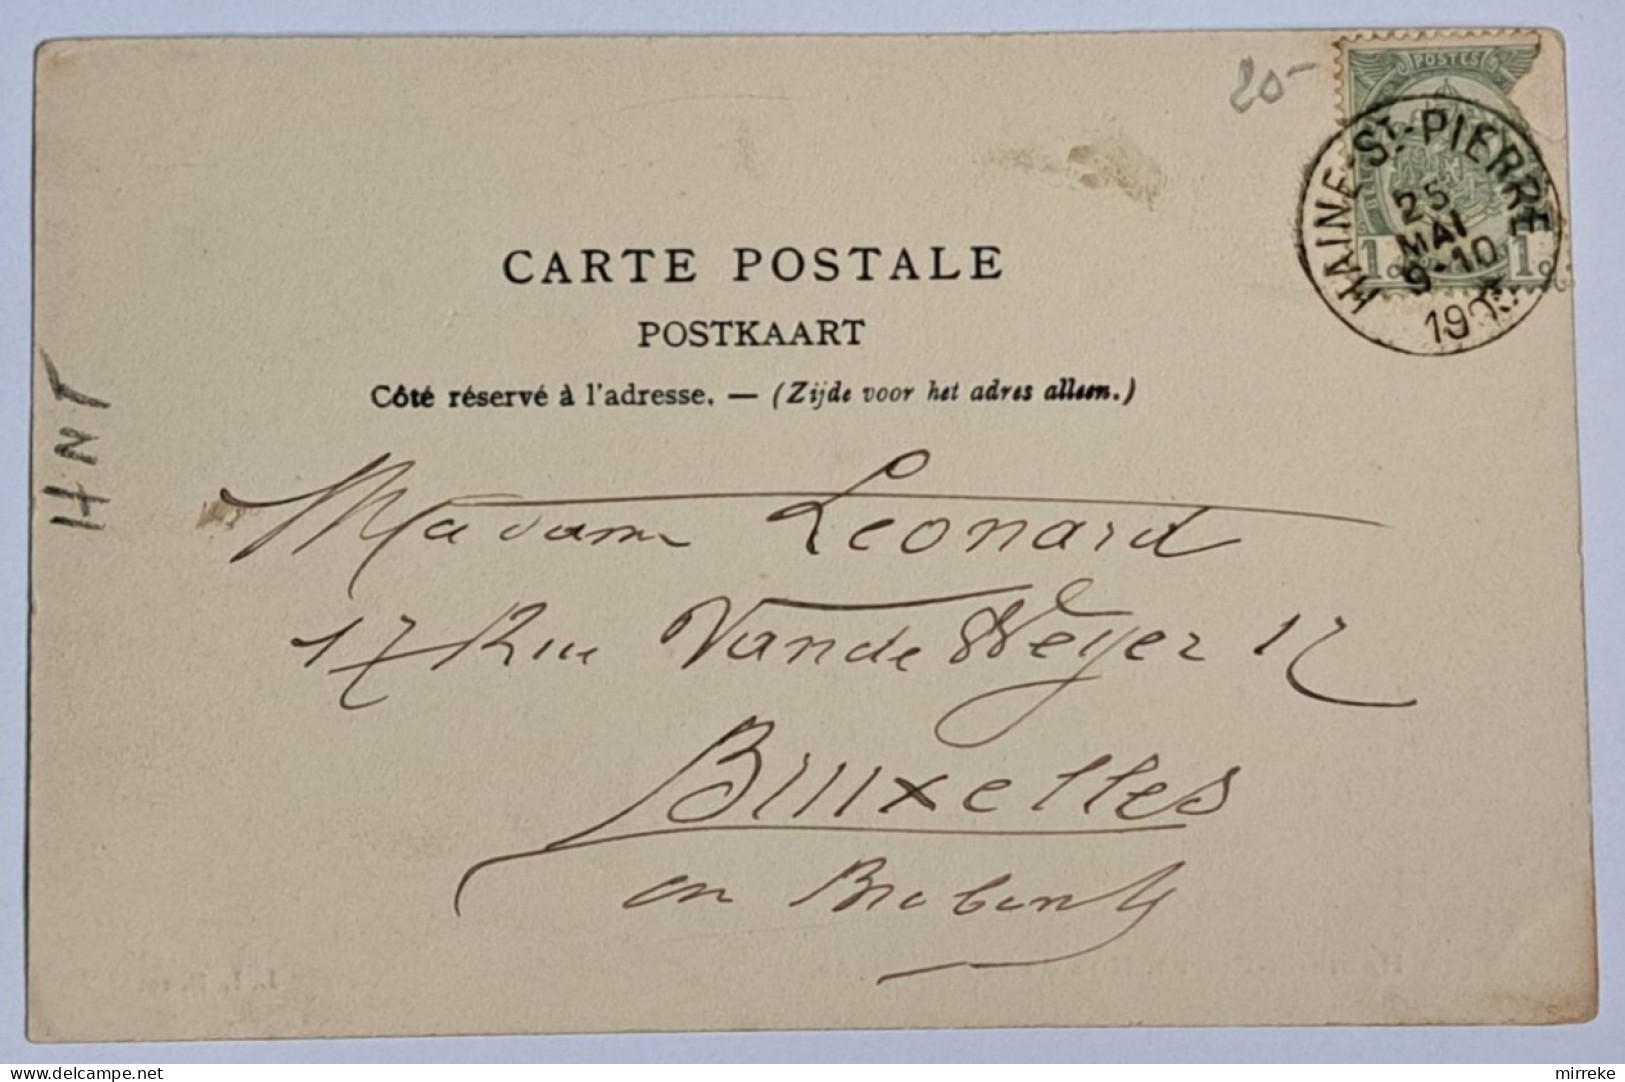 20-
POSTES
HAINE-ST-PIERRE
25
MAI
9-10
1 1
CARTE POSTALE
POSTKAART
Côté réservé à l'adresse. — (Zijde voor het adres alleen.)
HNT
Madame Leonard
17 Rue Vande Weyer 17
Bruxelles
en Brabant
mirreke